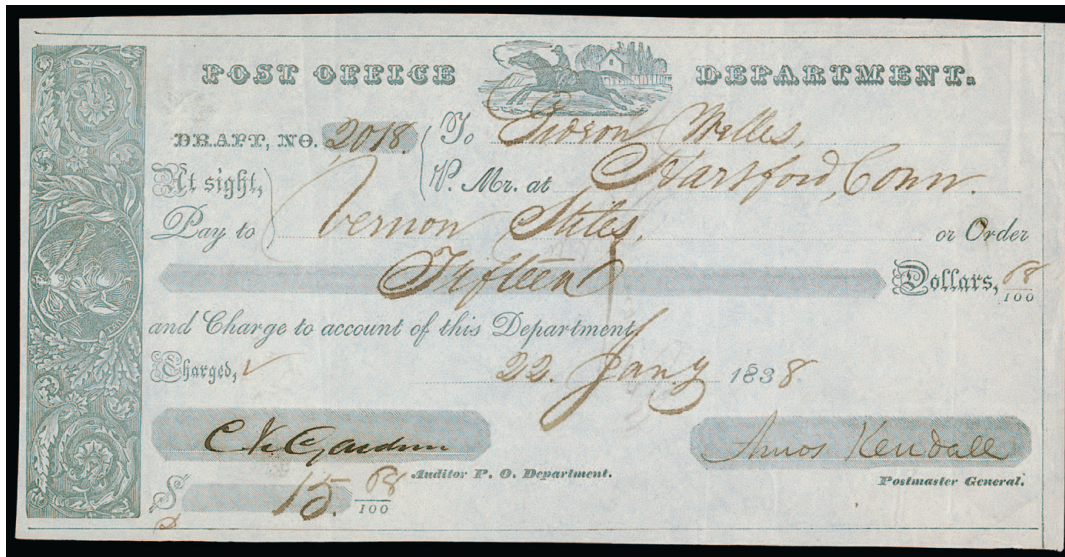 POST OFFICE DEPARTMENT.
DRAFT, NO. 2018. To Gideon Welles,
At sight, P. Mr. at Hartford, Conn.
Pay to Vernon Stiles, or Order
Fifteen Dollars, 68/100
and Charge to account of this Department.
Charged, 22. Jany 1838.
C. K. Gardner Amos Kendall
Auditor P. O. Department. Postmaster General.
$ 15. 68/100